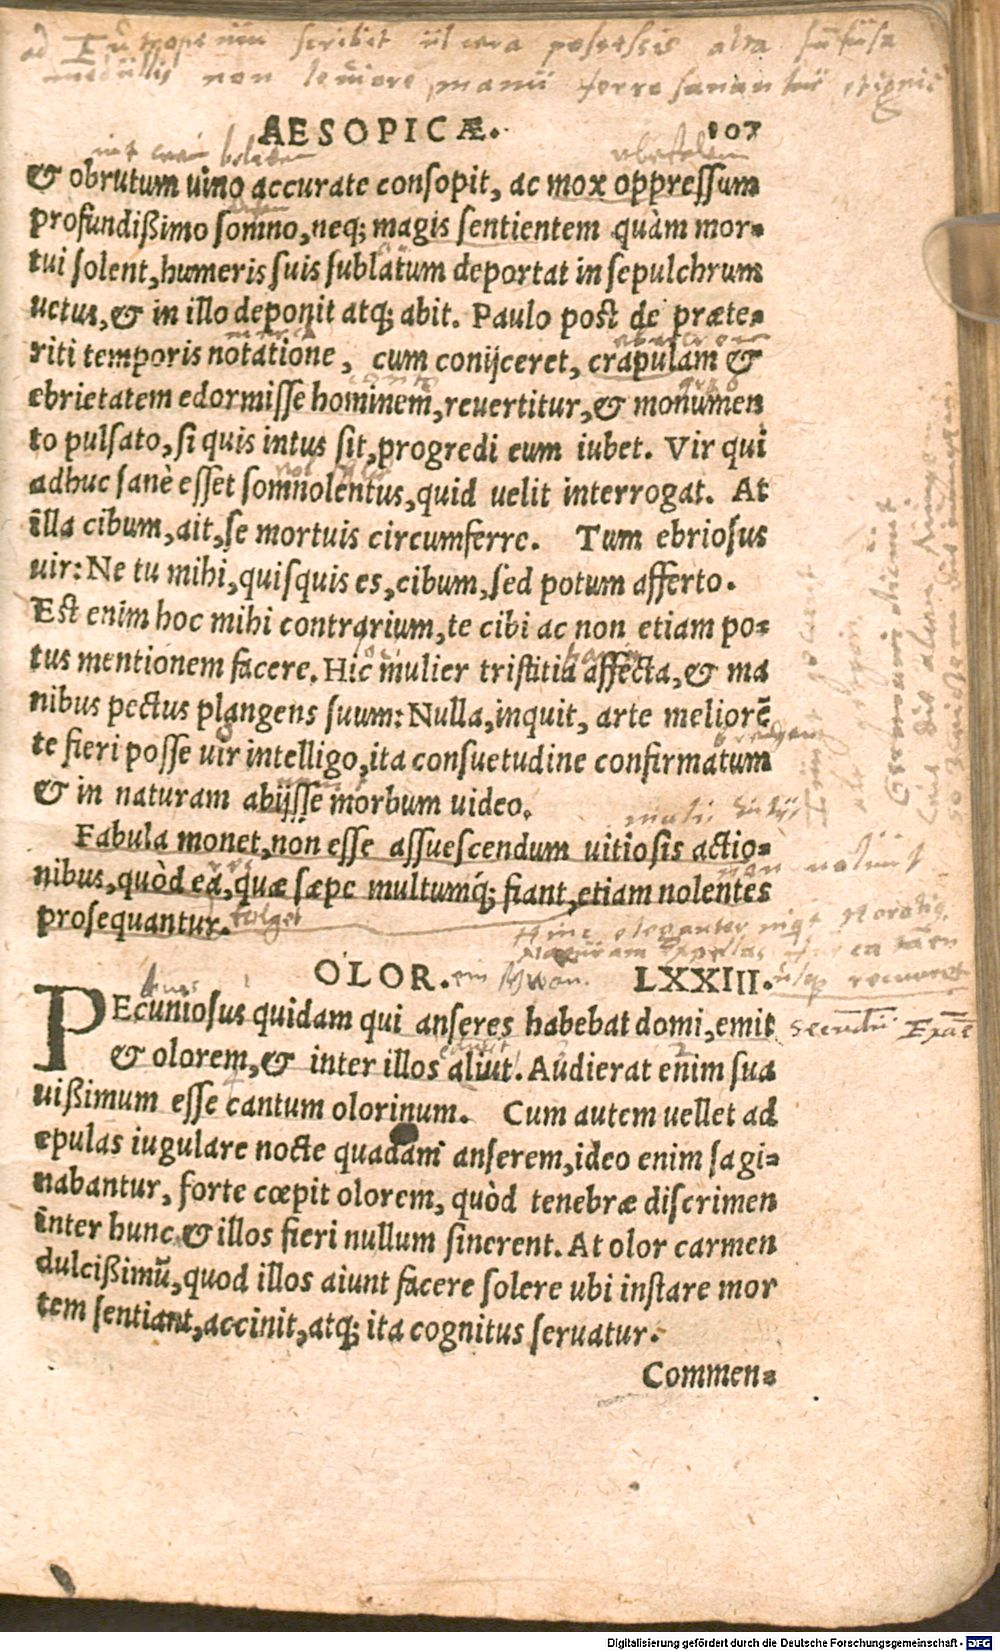 scribit ulcera possessis alta suffusa
medullis non leviore manu ferro sanantur et igni
AESOPICÆ. 107
& obrutum uino accurate consopit, ac mox oppressum
profundißimo somno, neq; magis sentientem quàm mor=
tui solent, humeris suis sublatum deportat in sepulchrum
uetus, & in illo deponit atq; abit. Paulo post de præte=
riti temporis notatione, cum conijceret, crapulam &
ebrietatem edormisse hominem, reuertitur, & monumen
to pulsato, si quis intus sit, progredi eum iubet. Vir qui
adhuc sanè esset somnolentus, quid uelit interrogat. At
illa cibum, ait, se mortuis circumferre. Tum ebriosus
uir: Ne tu mihi, quisquis es, cibum, sed potum afferto.
Est enim hoc mihi contrarium, te cibi ac non etiam po=
tus mentionem facere. Hic mulier tristitia affecta, & ma
nibus pectus plangens suum: Nulla, inquit, arte meliorē
te fieri posse uir intelligo, ita consuetudine confirmatum
& in naturam abijsse morbum uideo.
Fabula monet, non esse assuescendum uitiosis actio=
nibus, quòd ea, quæ sæpe multumq́; fiant, etiam nolentes
prosequantur.
OLOR. ein Schwan. LXXIII.
PEcuniosus quidam qui anseres habebat domi, emit
& olorem, & inter illos aliut. Audierat enim sua
uißimum esse cantum olorinum. Cum autem uellet ad
epulas iugulare nocte quadam anserem, ideo enim sagi=
nabantur, forte cœpit olorem, quòd tenebræ discrimen
inter hunc & illos fieri nullum sinerent. At olor carmen
dulcißimū, quod illos aiunt facere solere ubi instare mor
tem sentiant, accinit, atq; ita cognitus seruatur.
Commen=
Digitalisierung gefördert durch die Deutsche Forschungsgemeinschaft - DFG